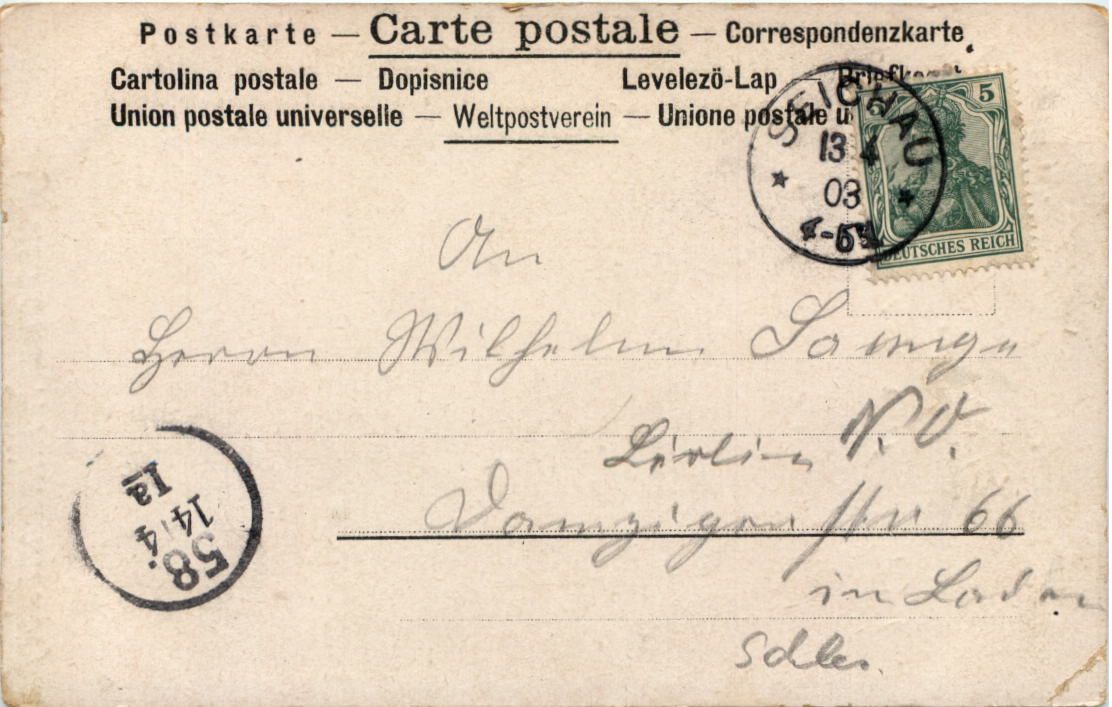 Postkarte — Carte postale — Correspondenzkarte
Cartolina postale — Dopisnice Levelezö-Lap Briefkaart
Union postale universelle — Weltpostverein — Unione postale u
SEICHAU
13 4
03
5
DEUTSCHES REICH
An
Herrn Wilhelm
Berlin N.O.
Danziger str 66
in Laden
Schles.
58.
14 4
Ia